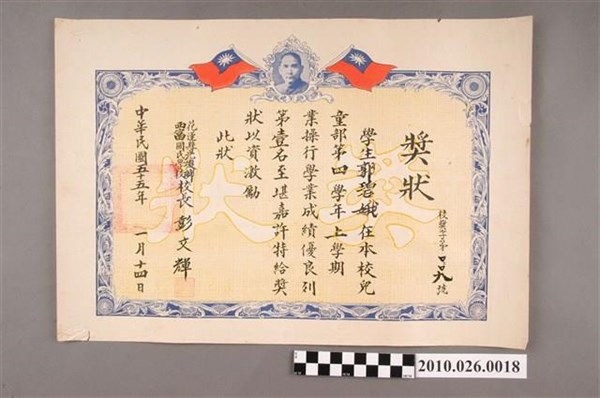 獎狀
校獎字第 號
學生郭碧娥在本校兒
童部第四學年上學期
業操行學業成績優良列
第壹名至堪嘉許特給獎
狀以資激勵
此狀
花蓮縣
西富國民學校校長 彭文輝
中華民國五十五年 一月十四日
獎狀
2010.026.0018